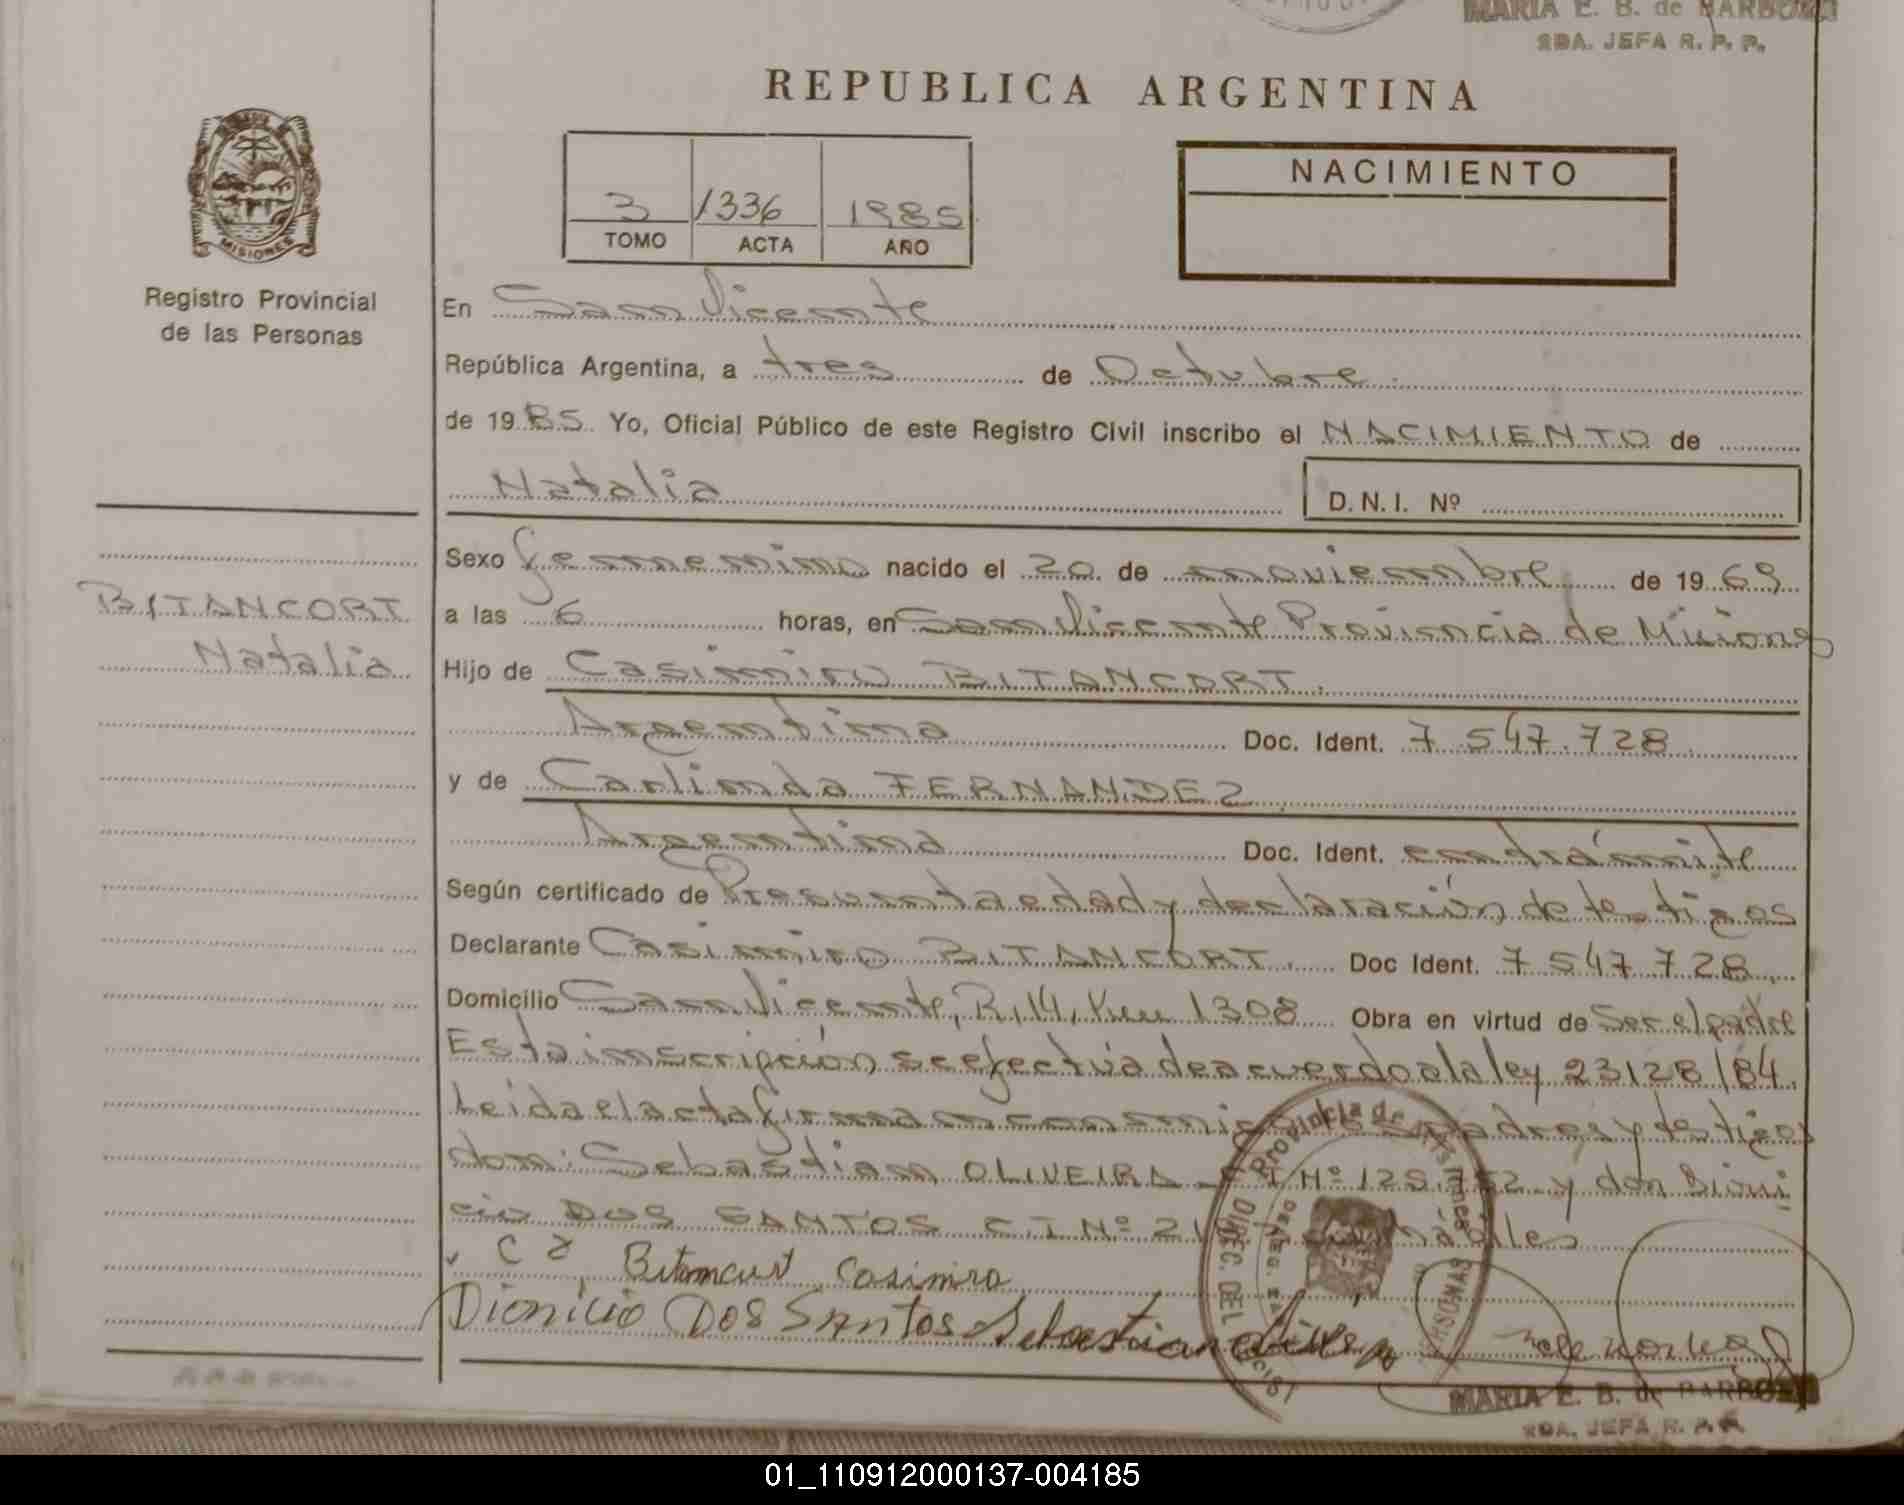 MARIA E. B. de BARBOZA
SDA. JEFA R. P. P.
REPUBLICA ARGENTINA
MISIONES
Registro Provincial
de las Personas
3 1336 1985
TOMO ACTA AÑO
NACIMIENTO
En San Vicente
República Argentina, a tres de Octubre
de 1985 Yo, Oficial Público de este Registro Civil inscribo el NACIMIENTO de
Natalia
D.N.I. Nº
BITANCORT
Natalia
Sexo femenino nacido el 20 de noviembre de 1969
a las 6 horas, en San Vicente Provincia de Misiones
Hijo de Casimiro BITANCORT.
Argentina Doc. Ident. 7 547.728
y de Carlinda FERNANDEZ
Argentina Doc. Ident. en trámite
Según certificado de Presunta edad y declaración de testigos
Declarante Casimiro BITANCORT. Doc Ident. 7 547 728
Domicilio San Vicente, R, 14, Km 1308 Obra en virtud de Ser el padre
Esta inscripción se efectúa de acuerdo a la ley 23128/84.
Leida el acta firman conmigo padres y testigos
don: Sebastian OLIVEIRA Nº 129.752 y don Dioni
cio DOS SANTOS C.I Nº 21 hábiles
Bitancurt Casimiro
Dionicio Dos Santos Sebastian
Provincia de Misiones
DIREC. DEL
PERSONAS
MARIA E. B. de BARBOZA
SDA. JEFA R. P. P.
01_110912000137-004185